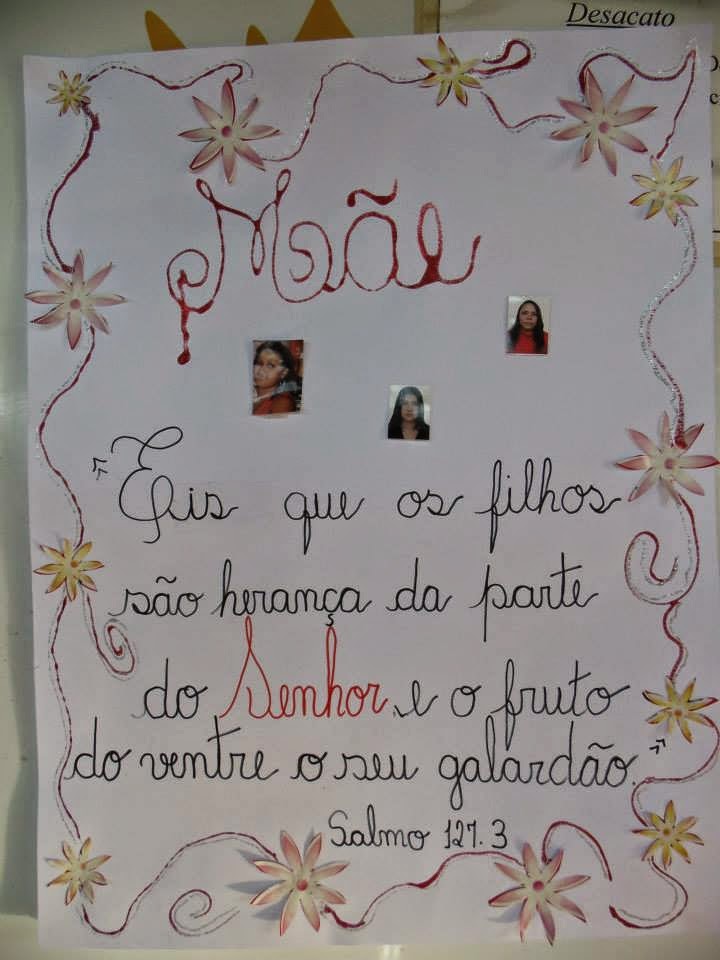 Desacato
Mãe
"Eis que os filhos
são herança da parte
do Senhor, e o fruto
do ventre o seu galardão."
Salmo 127.3